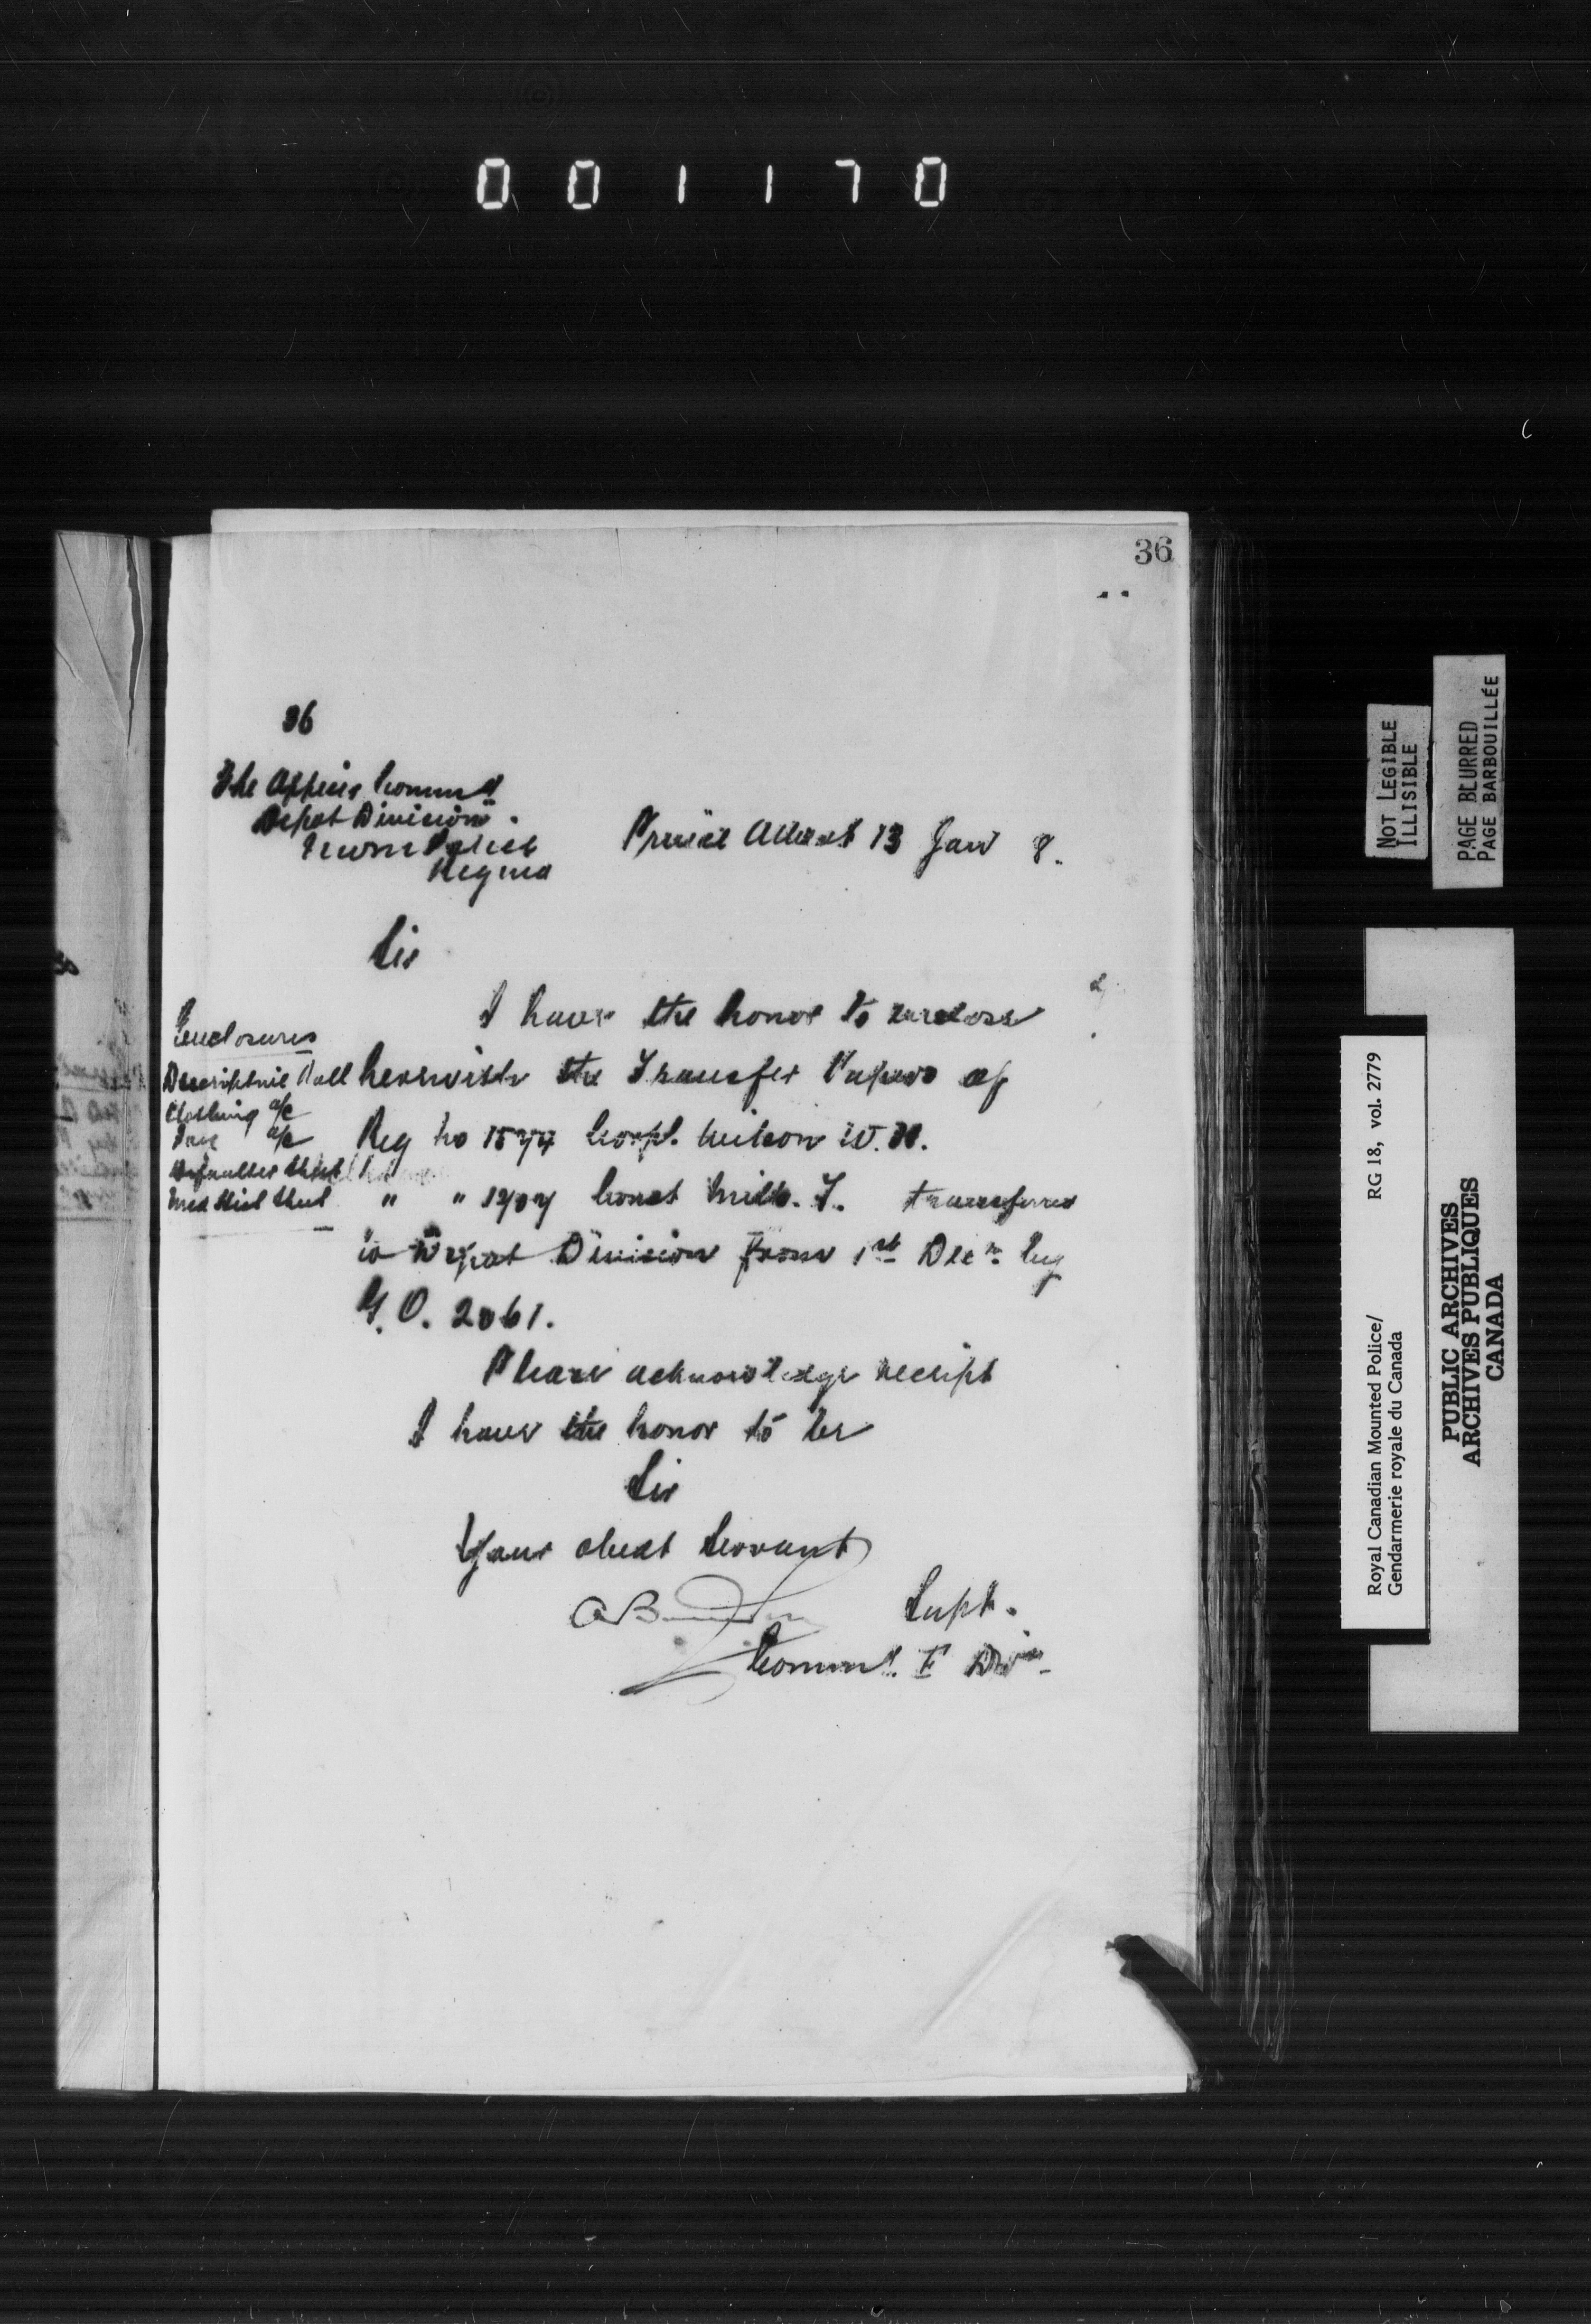 001170
36
36
The Officer Commdg
Depot Division
N.W.M. Police
Regina
Prince Albert 13 Jany 8.
Sir
I have the honor to enclose
herewith the Transfer Papers of
Reg No Corpl. Wilson W.
" " Const Mills. T. transferred
to Depot Division from 1st Decr by
G.O. 2061.
Please acknowledge receipt
I have the honor to be
Sir
Your obedt Servant
Supt.
Commdg. F Divn
Enclosures
Descriptive Roll
Clothing a/c
Pay a/c
Defaulter Sheet
Med Hist Sheet
NOT LEGIBLE
ILLISIBLE
PAGE BLURRED
PAGE BARBOUILLÉE
Royal Canadian Mounted Police/ RG 18, vol. 2779
Gendarmerie royale du Canada
PUBLIC ARCHIVES
ARCHIVES PUBLIQUES
CANADA